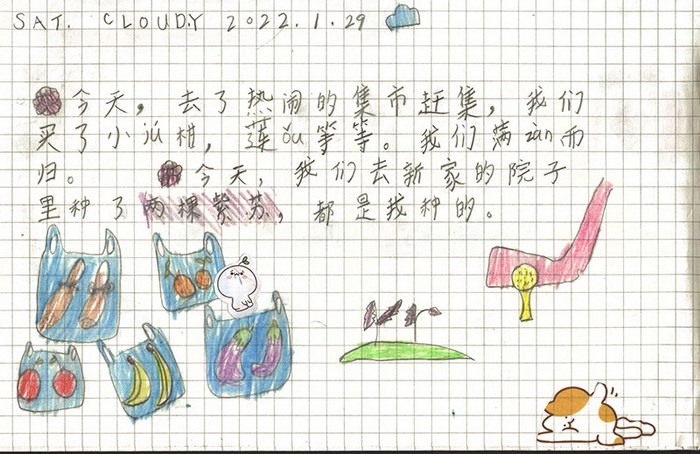 SAT. CLOUDY 2022.1.29
今天，去了热闹的集市赶集，我们
买了小jú柑，莲ǒu等等。我们满zài而
归。 今天，我们去新家的院子
里种了两棵紫苏，都是我种的。